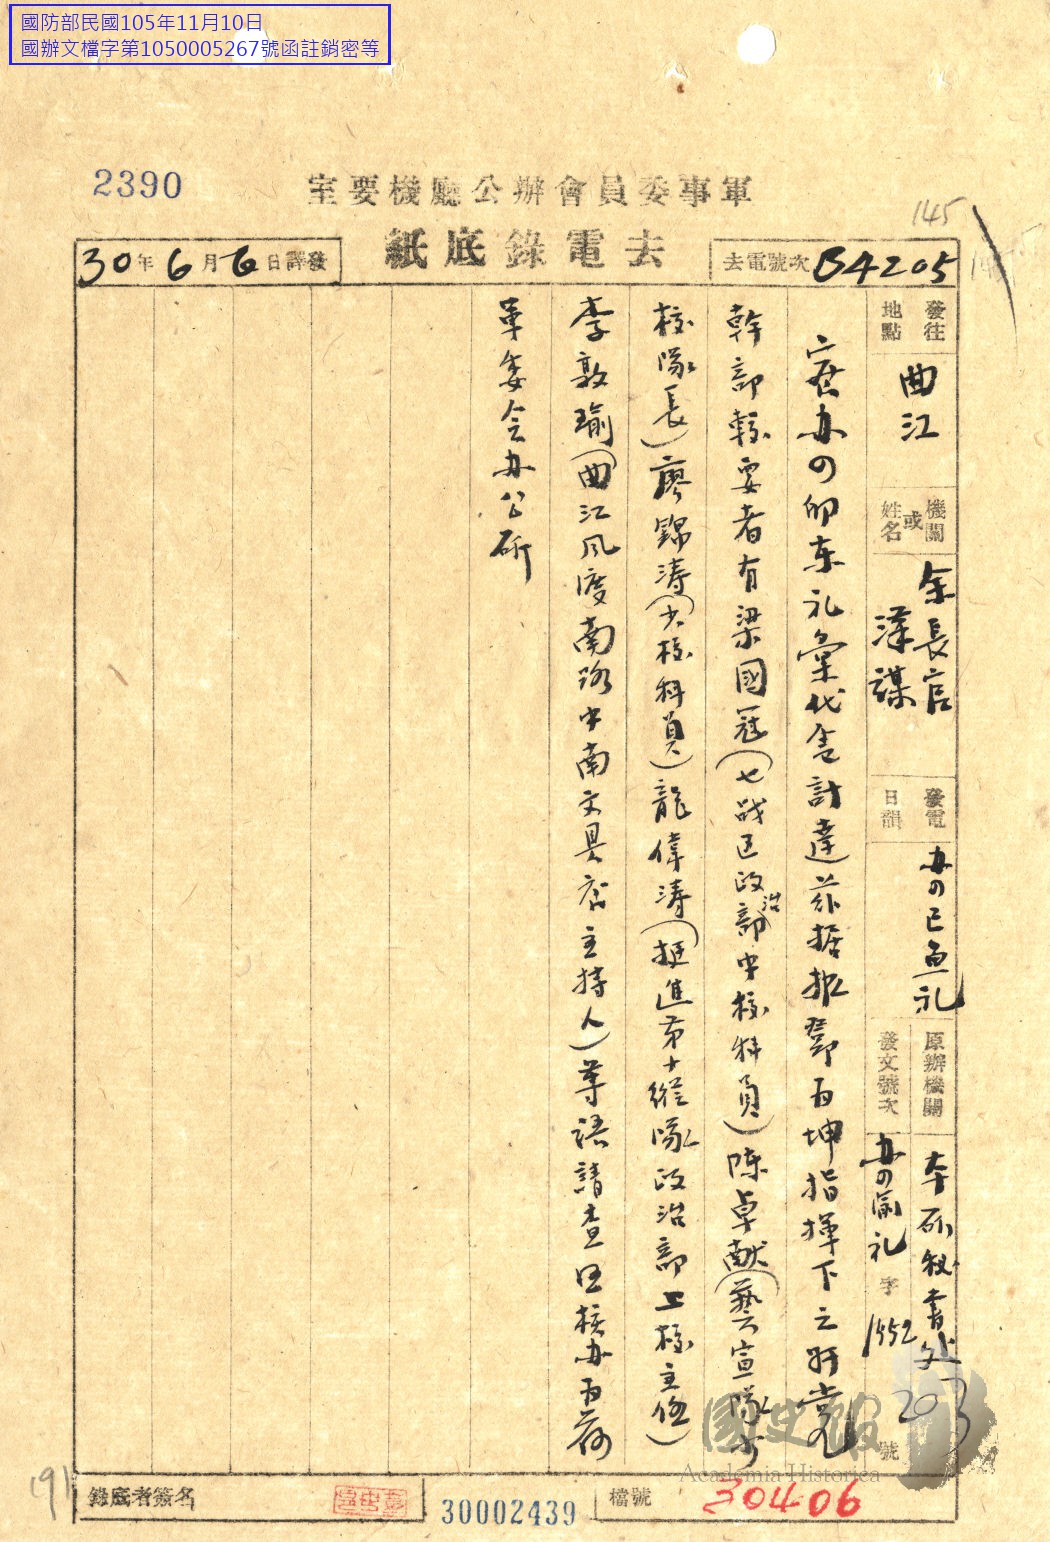 國防部民國105年11月10日
國辦文檔字第1050005267號函註銷密等
2390
軍事委員會辦公廳機要室
145
去電錄底紙
去電號次 B4205
30年6月6日譯發
發往地點 曲江
機關或姓名 余長官漢謀
發電日韻 办四已魚礼
原辦機關 本所秘書处
發文號次 办四渝礼字1552 203號
密办四卯东礼彙代电計達茲据报鄧百坤指揮下之奸党
幹部較要者有梁國冠(七战区政治部中校科員)陳卓献(藝宣隊少
校隊長)廖錦涛(少校科員)龍偉涛(挺進第十縱隊政治部上校主任)
李敦瑜(曲江风度南路中南文具店主持人)等語請查照核办为荷
军委会办公厅
錄底者簽名
30002439
檔號 30406
國史館
Academia Historica
191